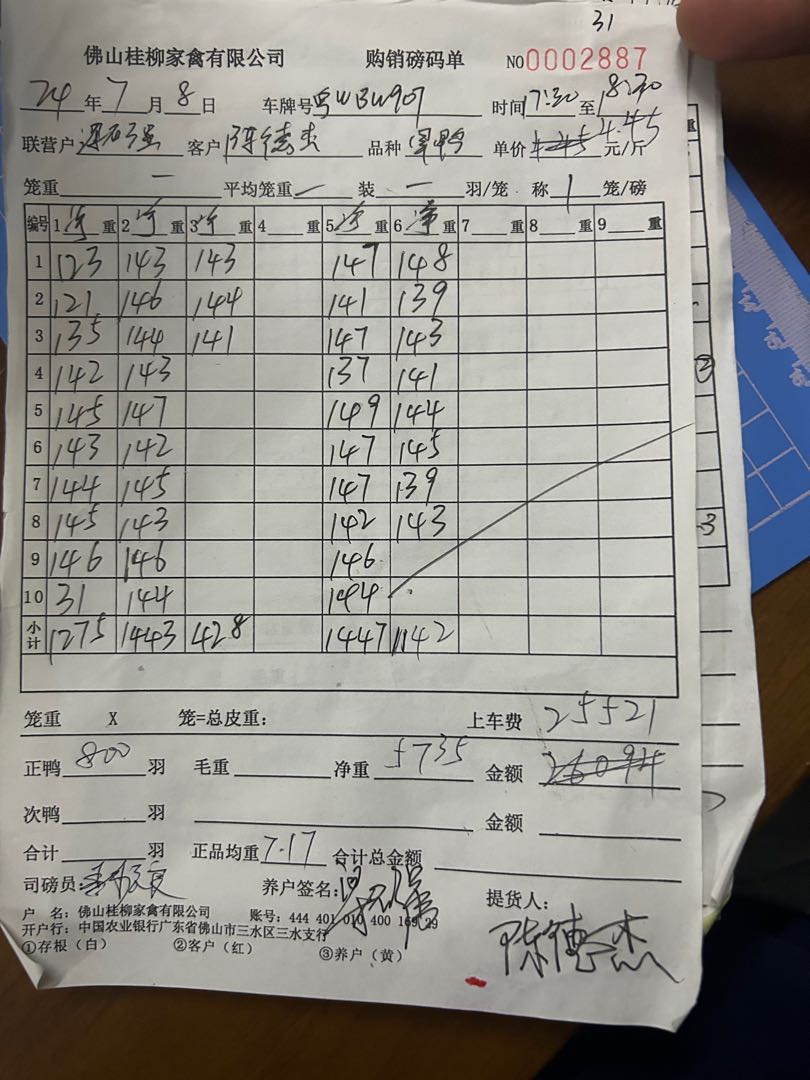 31
佛山桂柳家禽有限公司 购销磅码单 NO0002887
24年7月8日 车牌号粤WBW907 时间17:30至18:30
联营户 客户陈德杰 品种 单价4.45元/斤
笼重一 平均笼重一 装一羽/笼 称1笼/磅
编号 1净重 2净重 3净重 4重 5净重 6净重 7重 8重 9重
1 123 143 143 147 148
2 121 146 144 141 139
3 135 144 141 147 143
4 142 143 137 141
5 145 147 149 144
6 143 142 147 145
7 144 145 147 139
8 145 143 142 143
9 146 146 146
10 31 144 144
小计 1275 1443 428 1447 1142
笼重 X 笼=总皮重: 上车费 25521
正鸭800羽 毛重 净重5735 金额 26094
次鸭 羽 金额
合计 羽 正品均重7.17 合计总金额
司磅员: 养户签名: 提货人:
户 名: 佛山桂柳家禽有限公司 账号: 444 401 010 400 169 29
开户行: 中国农业银行广东省佛山市三水区三水支行
①存根(白) ②客户(红) ③养户(黄)
陈德杰